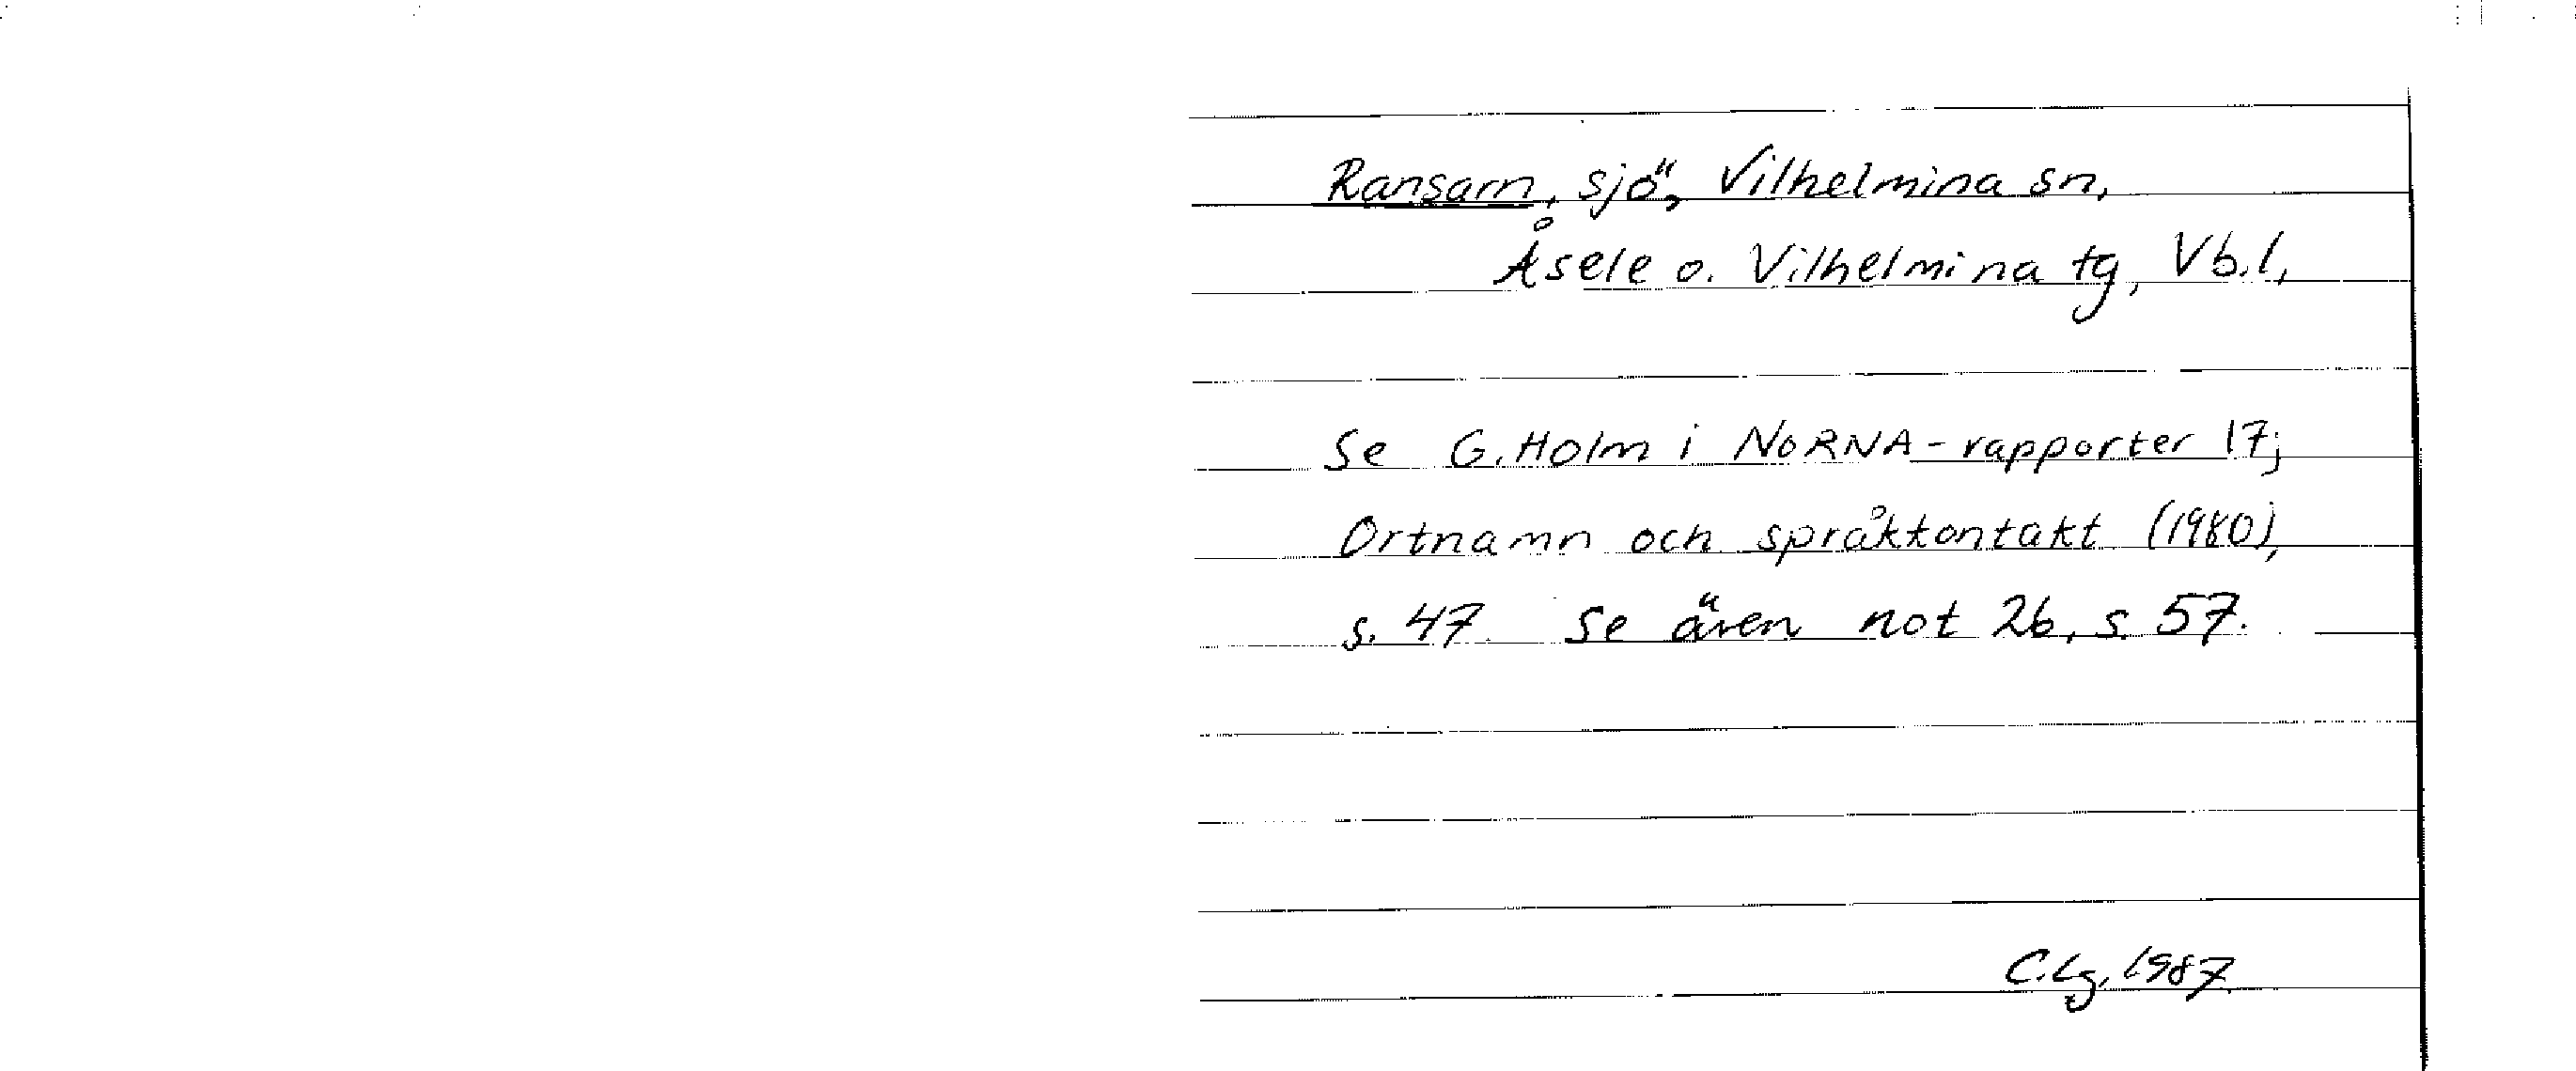 Ransarn, sjö, Vilhelmina sn,
Åsele o. Vilhelmina tg, Vb.l,
Se G. Holm i NORNA-rapporter 17;
Ortnamn och språkkontakt (1980),
s. 47. Se även not 26, s. 57.
C.Lg, 1987.